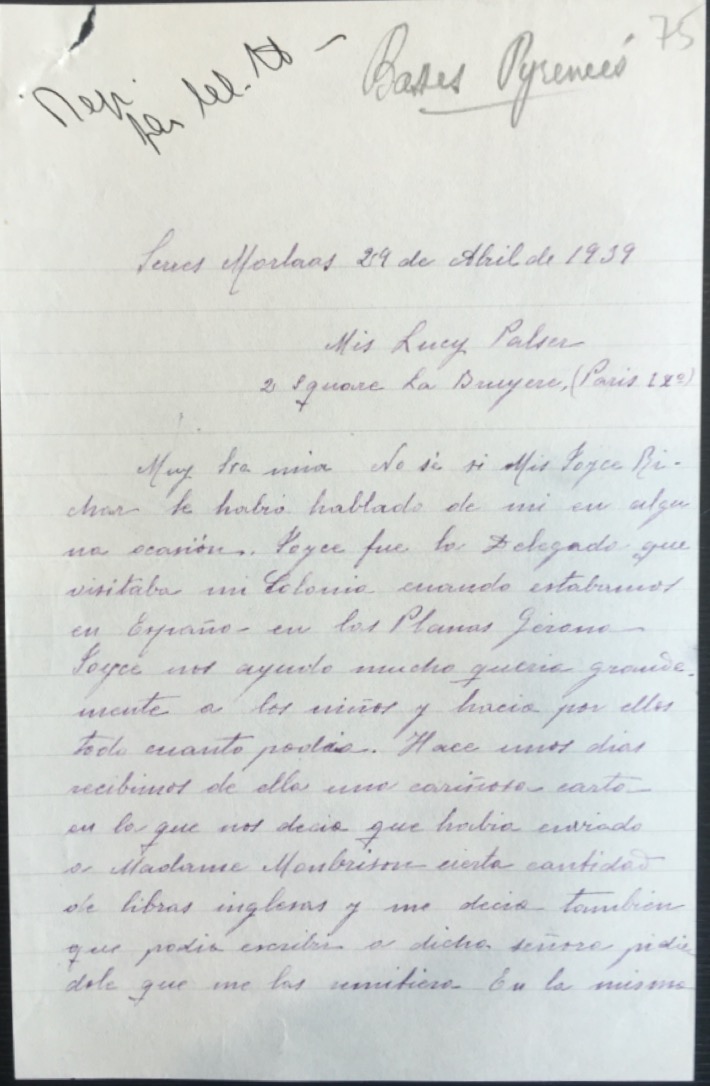 75
Basses Pyrenées
Serres Morlaas 29 de Abril de 1939
Mis Lucy Palser
2 Square La Bruyere, (Paris IXº)
Muy Sra mia No se si Mis Joyce Ri-
char le habrá hablado de mi en algu
na ocasión. Joyce fue la Delegada que
visitaba mi Colonia cuando estabamos
en España en las Planas Gerona
Joyce nos ayudo mucho queria grande-
mente a los niños y hacia por ellos
todo cuanto podia. Hace unos dias
recibimos de ella una cariñosa carta
en la que nos decia que habia enviado
a Madame Monbrison cierta cantidad
de libras inglesas y me decia tambien
que podia escribir a dicha señora pidie
dole que me las remitiera En la misma